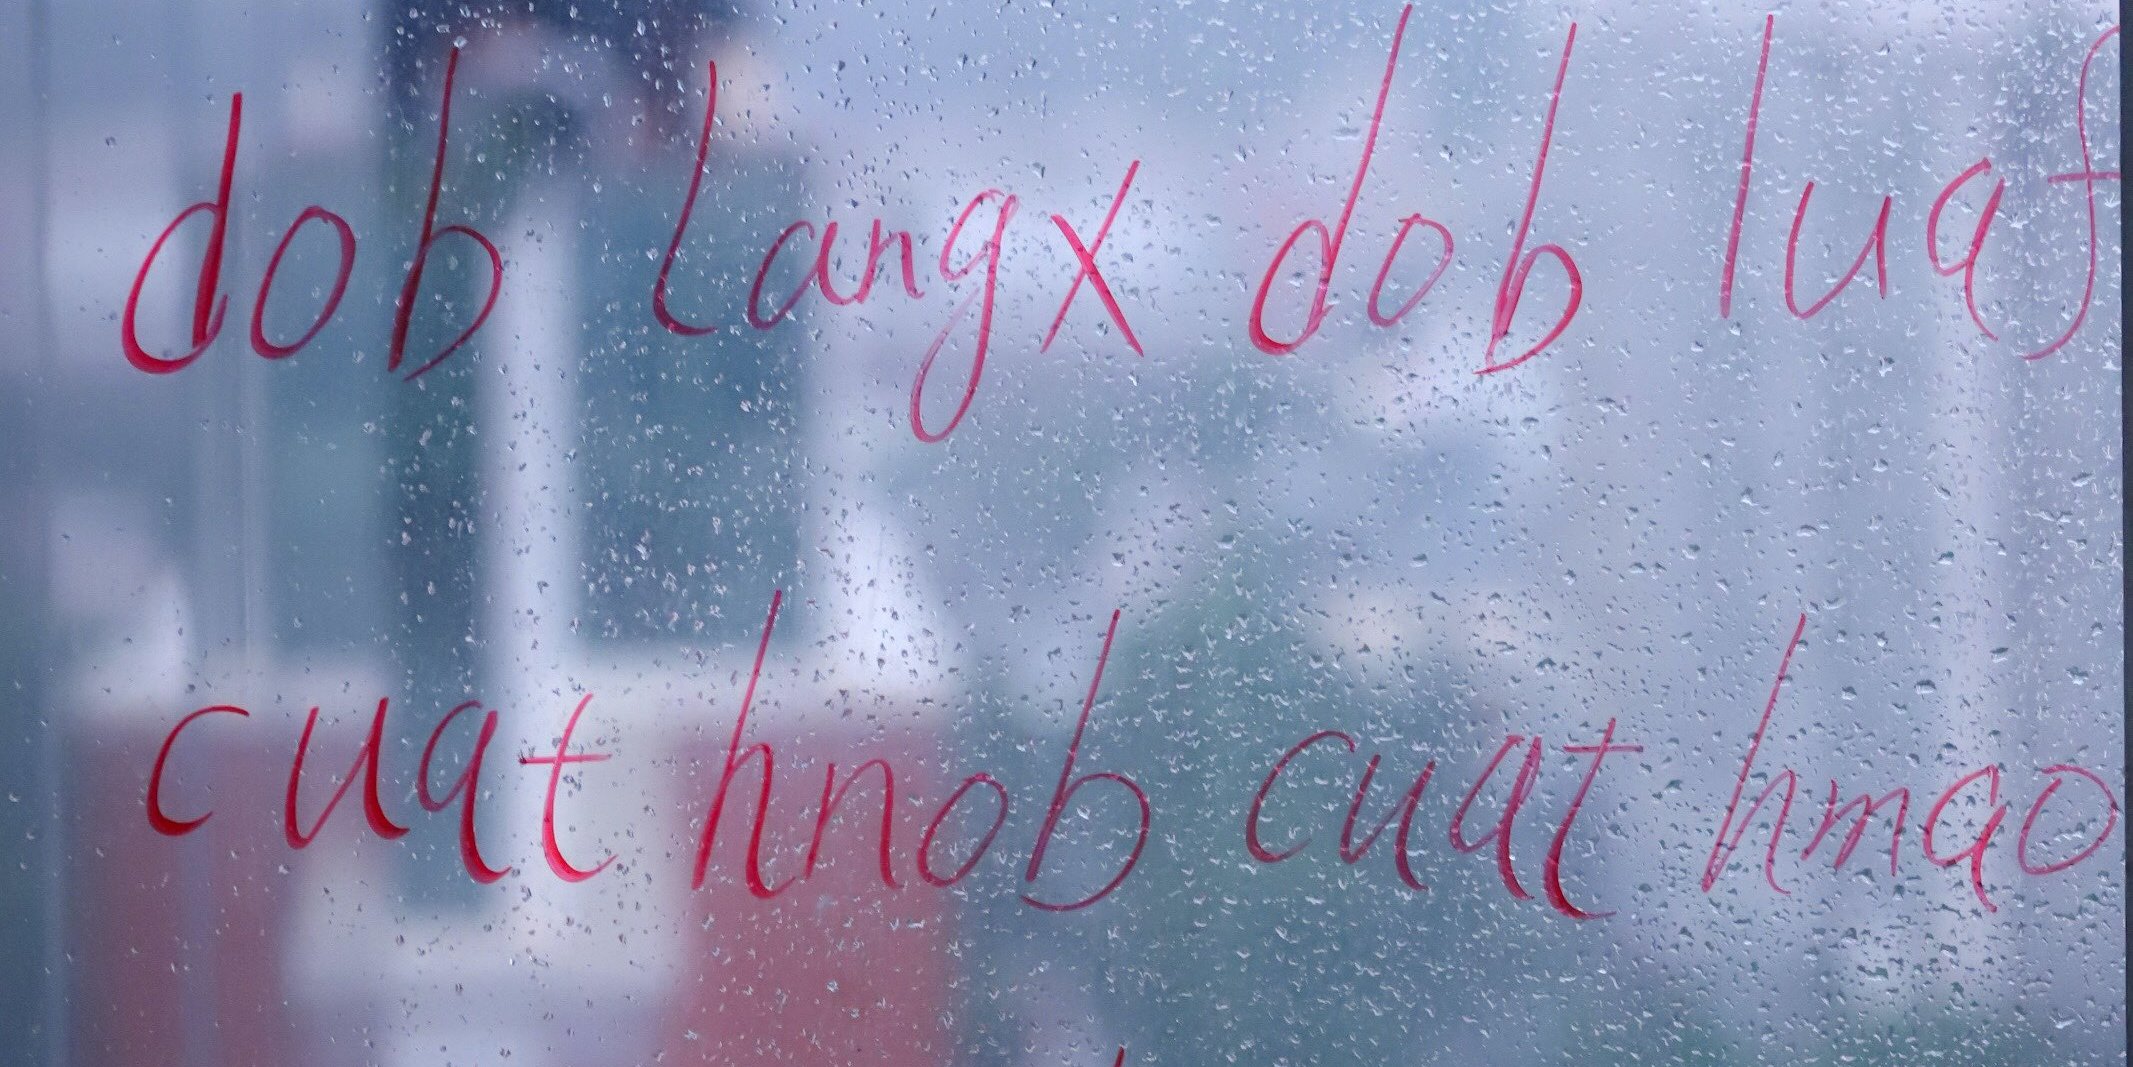 dob langx dob luaf
cuat hnob cuat hmao